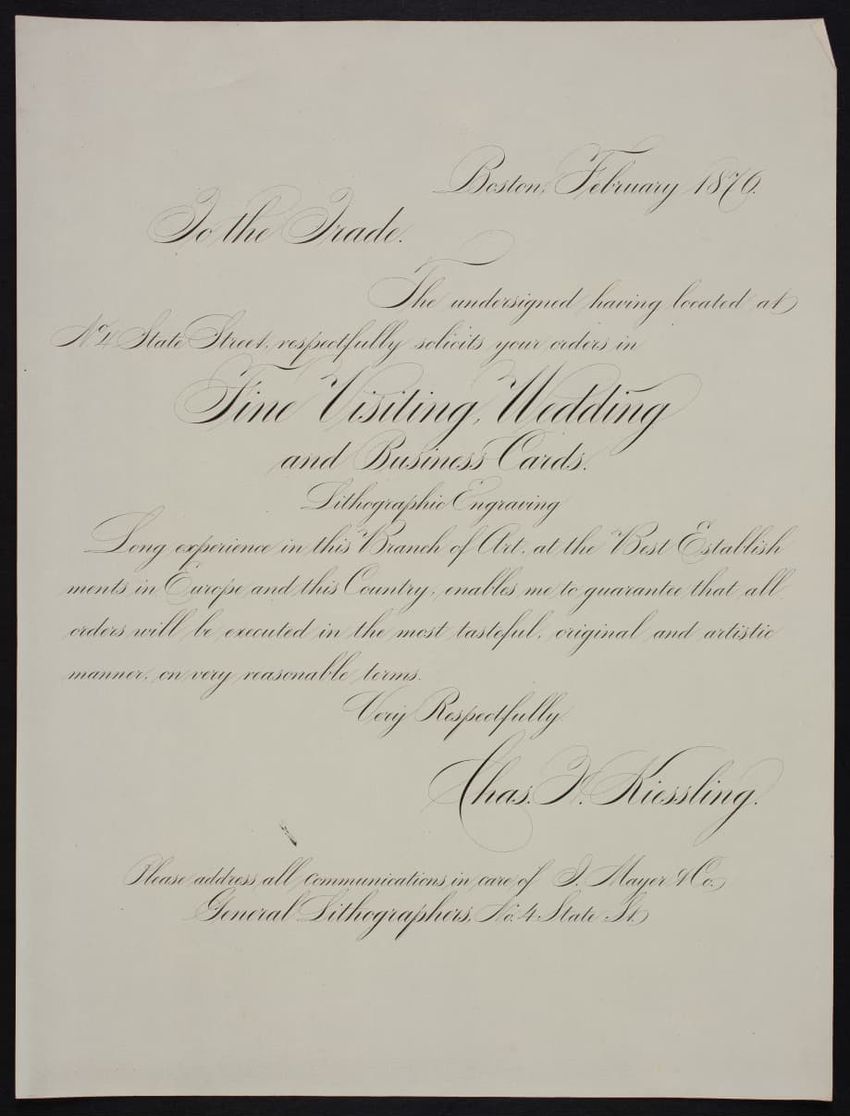 Boston, February 1876.
To the Trade.
The undersigned having located at
No. 4 State Street, respectfully solicits your orders in
Fine Visiting, Wedding
and Business Cards.
Lithographic Engraving
Long experience in this Branch of Art, at the Best Establish
ments in Europe and this Country, enables me to guarantee that all
orders will be executed in the most tasteful, original and artistic
manner, on very reasonable terms.
Very Respectfully
Chas. Kiessling.
Please address all communications in care of J. Mayer & Co.
General Lithographers, No. 4 State St.